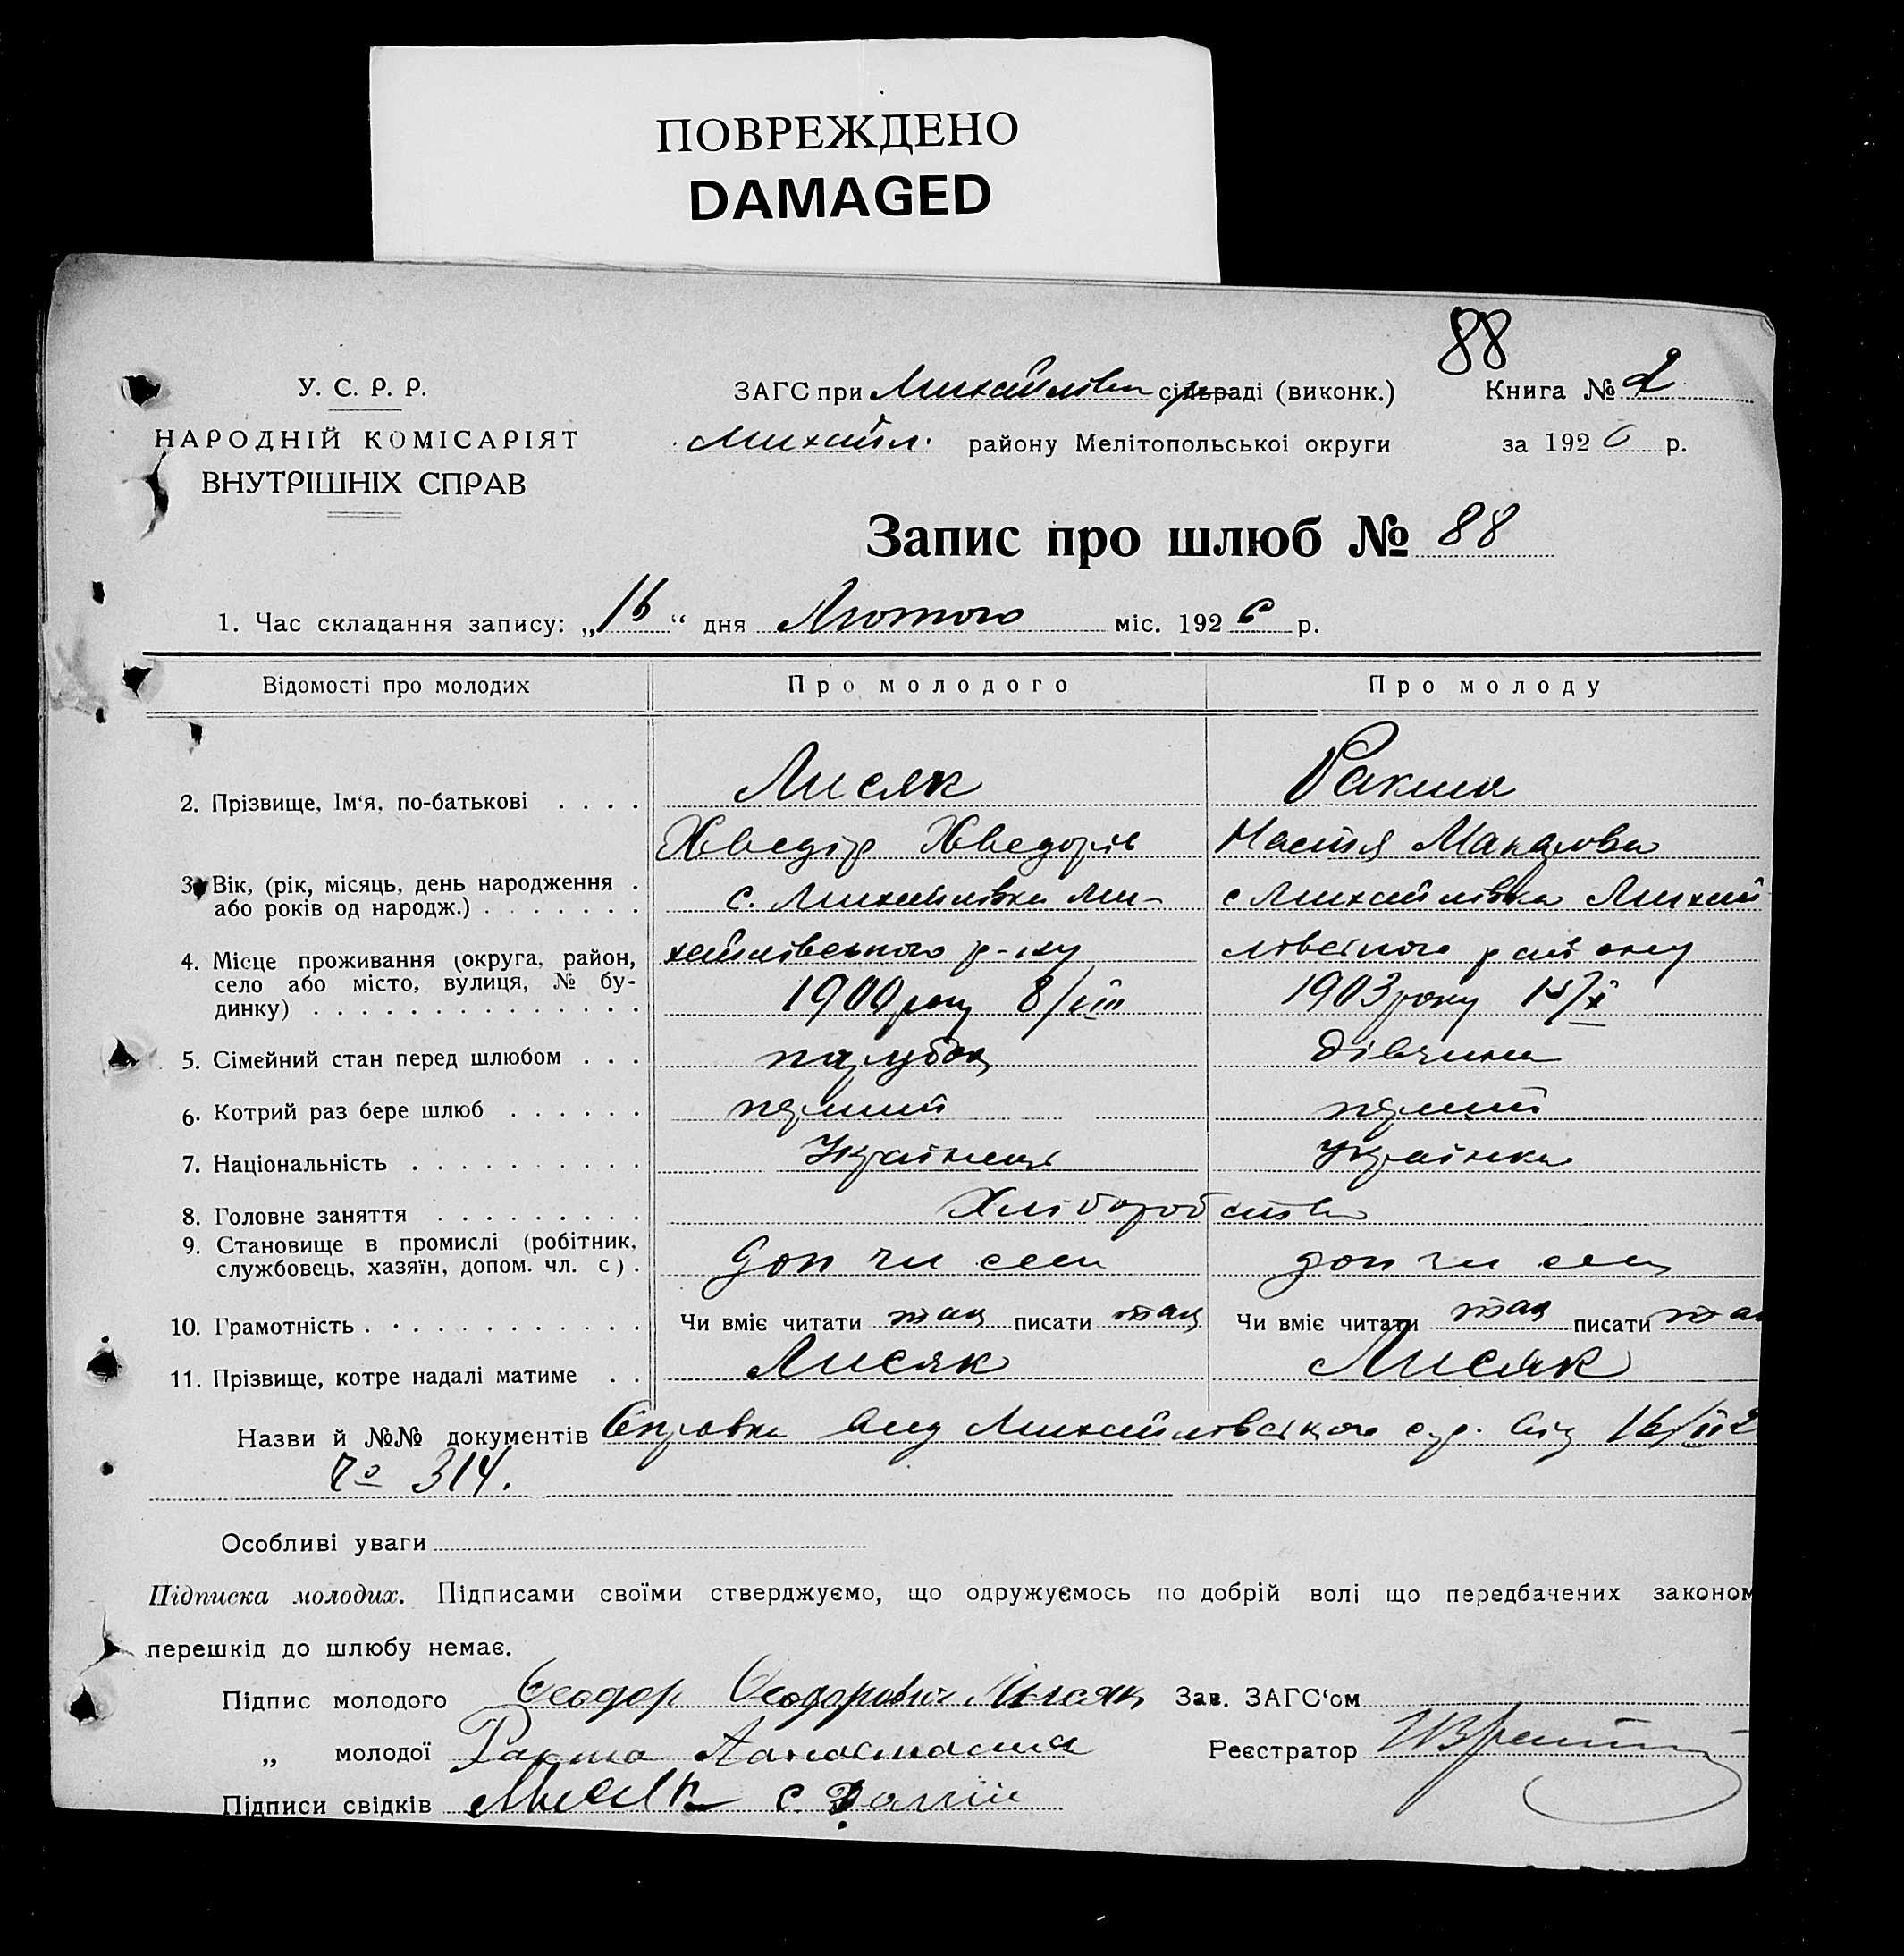 ПОВРЕЖДЕНО
DAMAGED
88
У. С. Р. Р.
НАРОДНІЙ КОМІСАРІЯТ
ВНУТРІШНІХ СПРАВ
ЗАГС при Михайлівц сільраді (виконк.) Книга № 2
Михайл. району Мелітопольської округи за 1926 р.
Запис про шлюб № 88
1. Час складання запису: „16“ дня Лютого міс. 1926 р.
Відомості про молодих Про молодого Про молоду
2. Прізвище, Ім'я, по-батькові . . . . Лисяк Ракша
Хведір Хведорів Настя Макарова
3. Вік, (рік, місяць, день народження . с. Михайлівка Ми- с Михайлівка Михай
або років од народж.) . . . . . . .
4. Місце проживання (округа, район, хайлівського р-ну лівського району
село або місто, вулиця, № бу- 1900 року 8/VIII 1903 року 15/X
динку) . . . . . . . . . . . . . .
5. Сімейний стан перед шлюбом . . . парубок дівчина
6. Котрий раз бере шлюб . . . . . . перший перший
7. Національність . . . . . . . . . . Українець Українка
8. Головне заняття . . . . . . . . . Хліборобство
9. Становище в промислі (робітник, доп чл сем доп чл сем
службовець, хазяїн, допом. чл. с) .
10. Грамотність . . . . . . . . . . . . Чи вміє читати так писати так Чи вміє читати так писати та
11. Прізвище, котре надалі матиме . . Лисяк Лисяк
Назви й №№ документів Справка Михайлівського від 16/II 2
№ 314.
Особливі уваги
Підписка молодих. Підписами своїми стверджуємо, що одружуємось по добрій волі що передбачених законом
перешкід до шлюбу немає.
Підпис молодого Феодор Феодорович Лисяк Зав. ЗАГС'ом
„ молодої Ракша Анастасия Реєстратор
Підписи свідків Лисяк С.